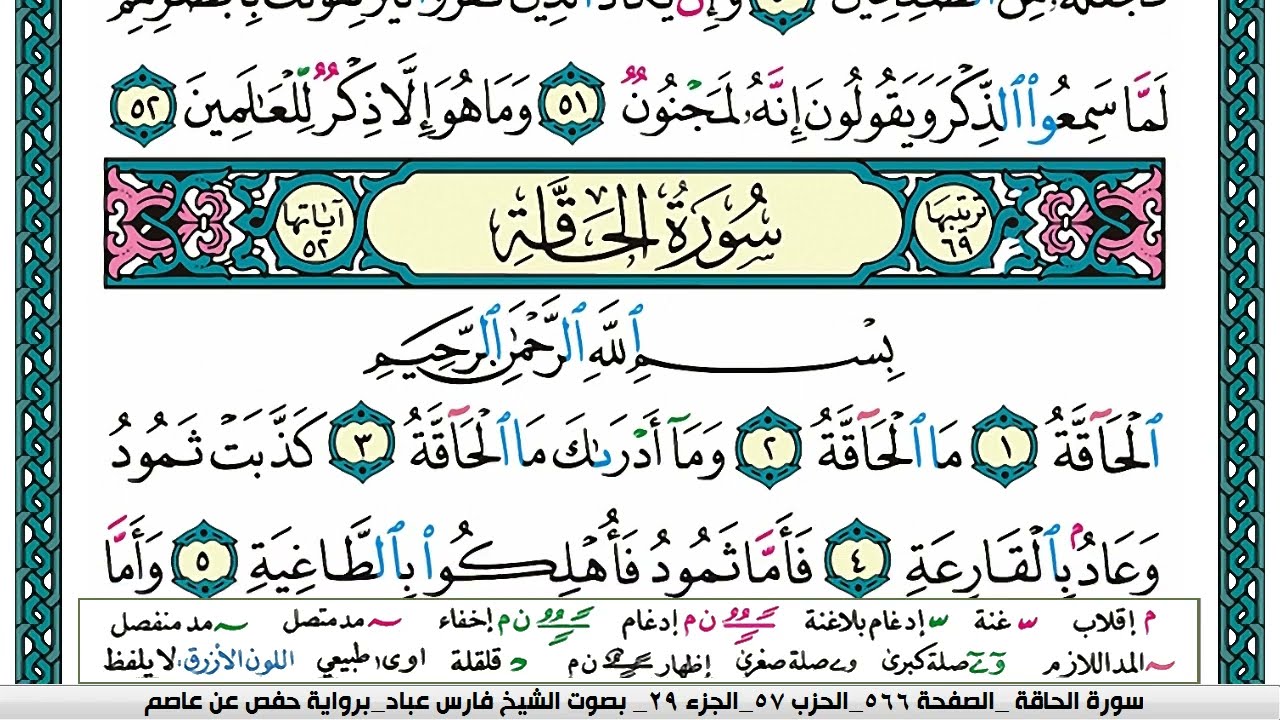 فَاجْعَلْهُ مِنَ الصَّٰلِحِينَ ٥٠ وَإِن يَكَادُ ٱلَّذِينَ كَفَرُوا۟ لَيُزْلِقُونَكَ بِأَبْصَٰرِهِمْ
لَمَّا سَمِعُوا۟ ٱلذِّكْرَ وَيَقُولُونَ إِنَّهُۥ لَمَجْنُونٌ ٥١ وَمَا هُوَ إِلَّا ذِكْرٌ لِّلْعَٰلَمِينَ ٥٢
ترتيبها ٦٩ سُورَةُ الحَاقَّة آياتها ٥٢
بِسْمِ ٱللَّهِ ٱلرَّحْمَٰنِ ٱلرَّحِيمِ
ٱلْحَآقَّةُ ١ مَا ٱلْحَآقَّةُ ٢ وَمَآ أَدْرَىٰكَ مَا ٱلْحَآقَّةُ ٣ كَذَّبَتْ ثَمُودُ
وَعَادٌۢ بِٱلْقَارِعَةِ ٤ فَأَمَّا ثَمُودُ فَأُهْلِكُوا۟ بِٱلطَّاغِيَةِ ٥ وَأَمَّا
م إقلاب ـس غنة ـس إدغام بلاغنة ن م إدغام ن م إخفاء ~ مد متصل ~ مد منفصل
~ المد اللازم و ے صلة كبرى و ے صلة صغرى إظهار ن م د قلقلة اوى طبيعي اللون الأزرق: لا يلفظ
سورة الحاقة _الصفحة ٥٦٦_الحزب ٥٧_الجزء ٢٩_ بصوت الشيخ فارس عباد_برواية حفص عن عاصم